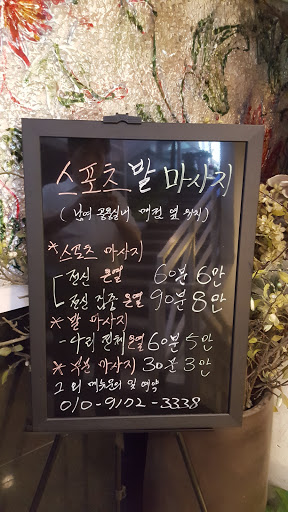 스포츠 발 마사지
(남여 공용실내 매점 옆 위치)
*스포츠 마사지
전신 온열 60분 6만
전신 집중 온열 90분 8만
* 발 마사지
-다리 전체 온열 60분 5만
* 부분 마사지 30분 3만
그 외 메뉴문의 및 예약
010-9102-3338